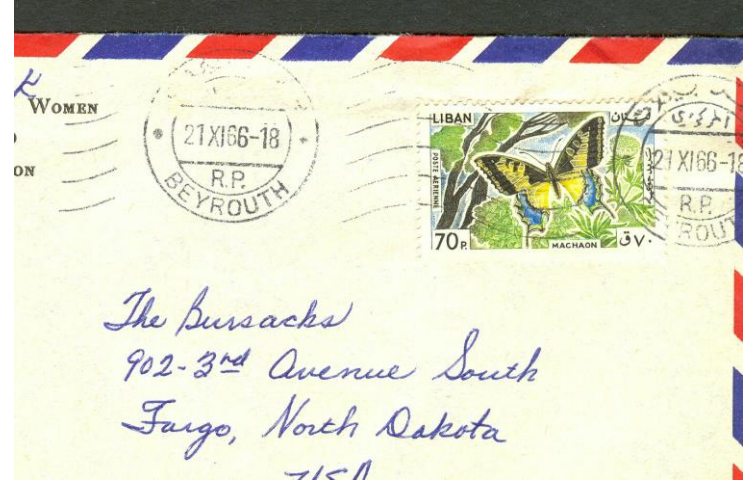 WOMEN
ON
21 XI 66-18
R.P.
BEYROUTH
LIBAN
لبنان
POSTE AERIENNE
70 P.
MACHAON
٧٠ ق
21 XI 66-18
R.P.
The Bursacks
902-3rd Avenue South
Fargo, North Dakota
USA